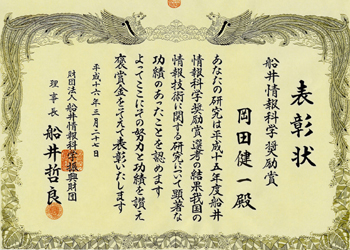 表彰状
船井情報科学奨励賞
岡田健一殿
あなたの研究は平成十五年度船井
情報科学奨励賞選考の結果我国の
情報技術に関する研究について顕著な
功績のあったことを認めます
よってここにその努力と功績を讃え
褒賞金をそえて表彰いたします
平成十六年三月二十七日
財団法人船井情報科学振興財団
理事長 船井哲良